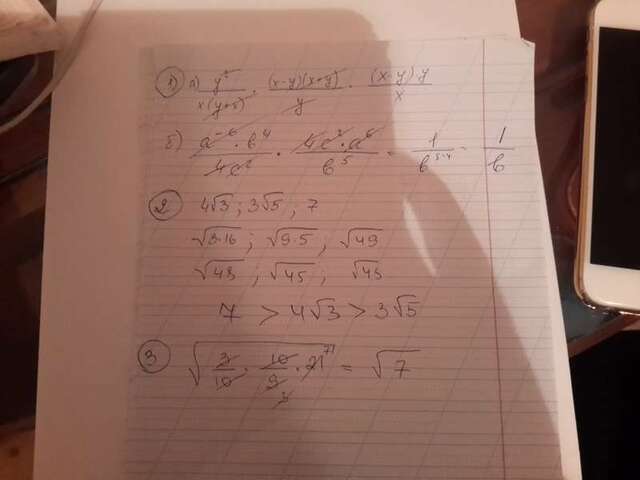 1) а) y²/x(y+x) · (x-y)(x+y)/y · (x-y)·y/x
б) a⁻⁶·b⁴/4c² · 4c²·a⁶/b⁵ = 1/b⁵⁻⁴ = 1/b
2 4√3 ; 3√5 ; 7
√3·16 ; √9·5 , √49
√48 ; √45 ; √49
7 > 4√3 > 3√5
3 √3/10 · 10/9 · 21 = √7